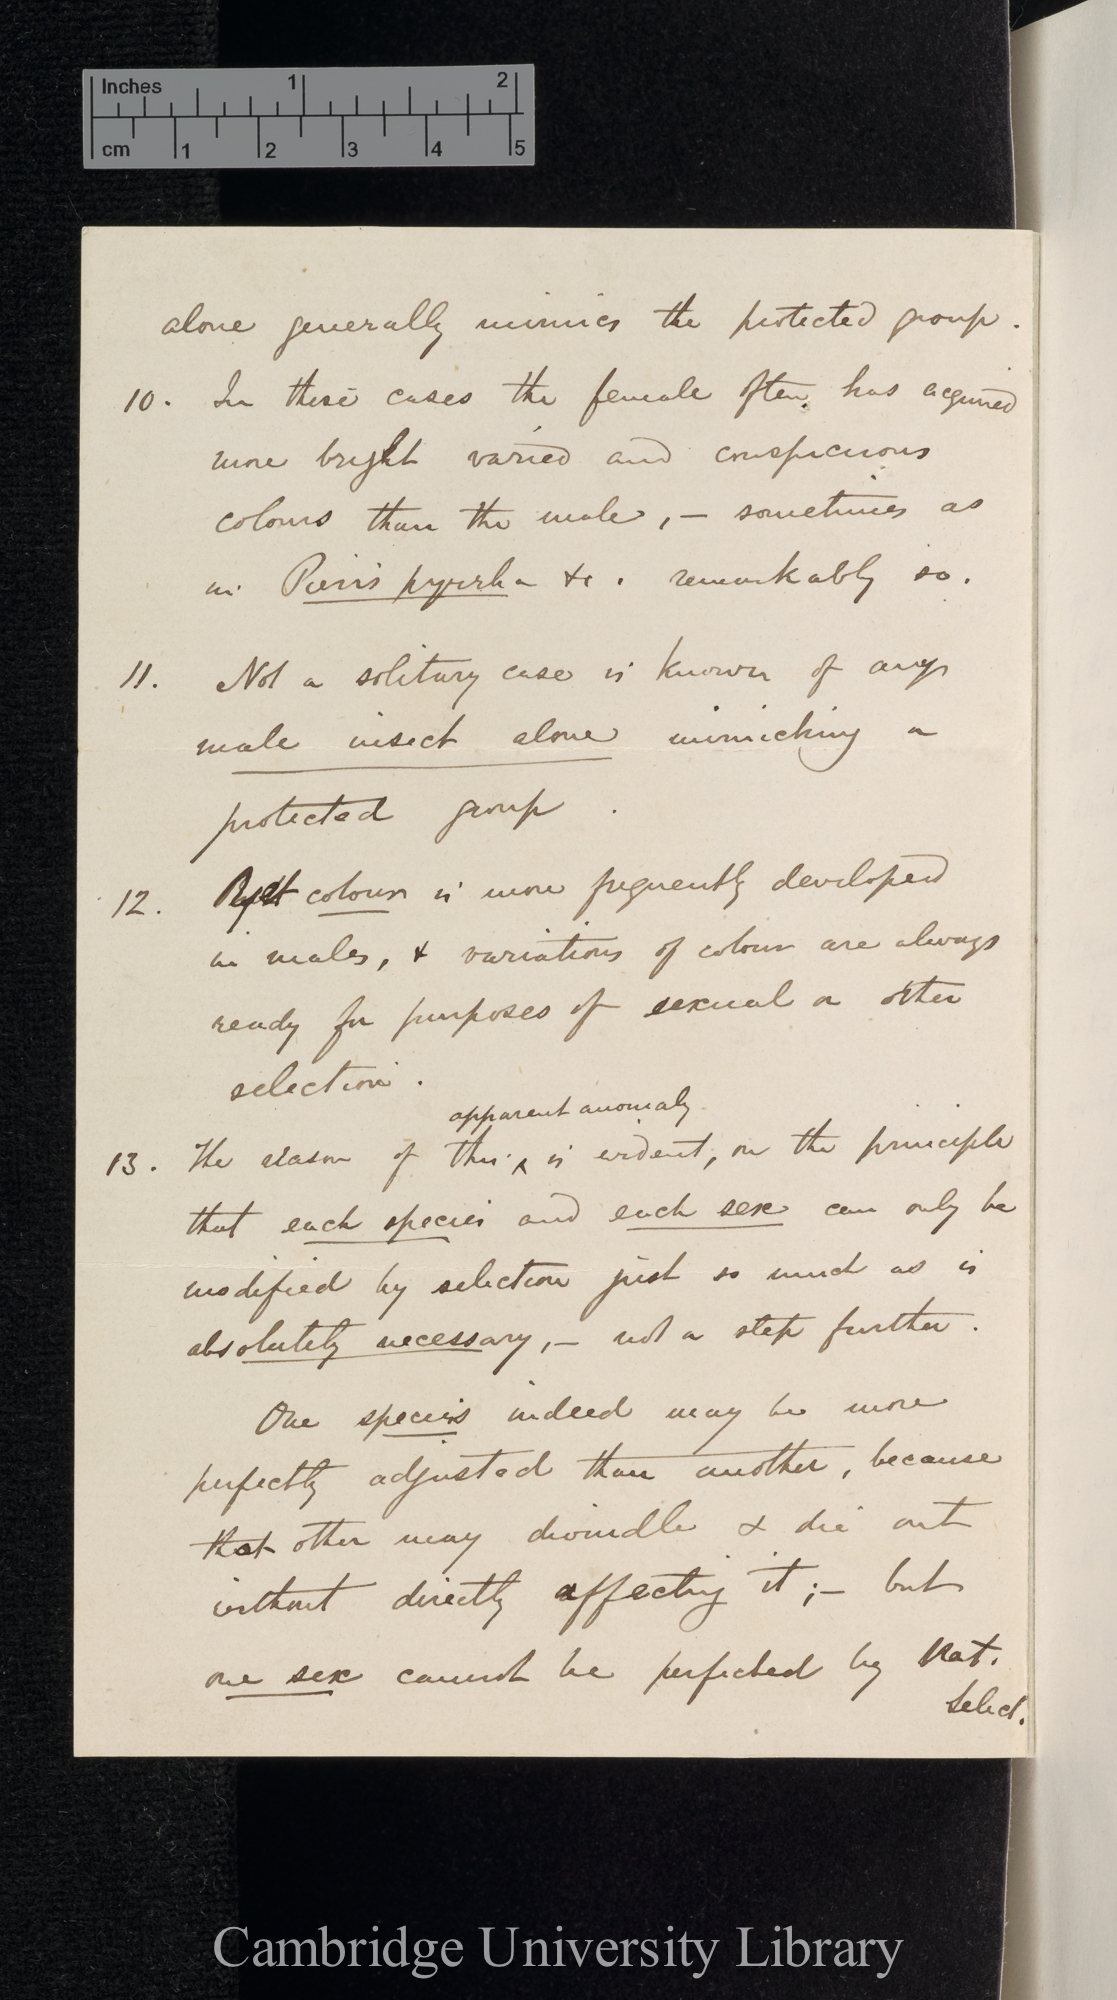 Inches 1 2
cm 1 2 3 4 5
alone generally mimics the protected group.
10. In these cases the female often has acquired
more bright varied and conspicuous
colours than the male, – sometimes as
in Pieris pyrrha &c. remarkably so.
11. Not a solitary case is known of any
male insect alone mimicking a
protected group.
12. colour is more frequently developed
in males, & variations of colour are always
ready for purposes of sexual or other
selection.
apparent anomaly
13. The reason of this ^ is evident, on the principle
that each species and each sex can only be
modified by selection just so much as is
absolutely necessary, – not a step further.
One species indeed may be more
perfectly adjusted than another, because
that other may dwindle & die out
without directly affecting it; – but
one sex cannot be perfected by Nat.
Select.
Cambridge University Library